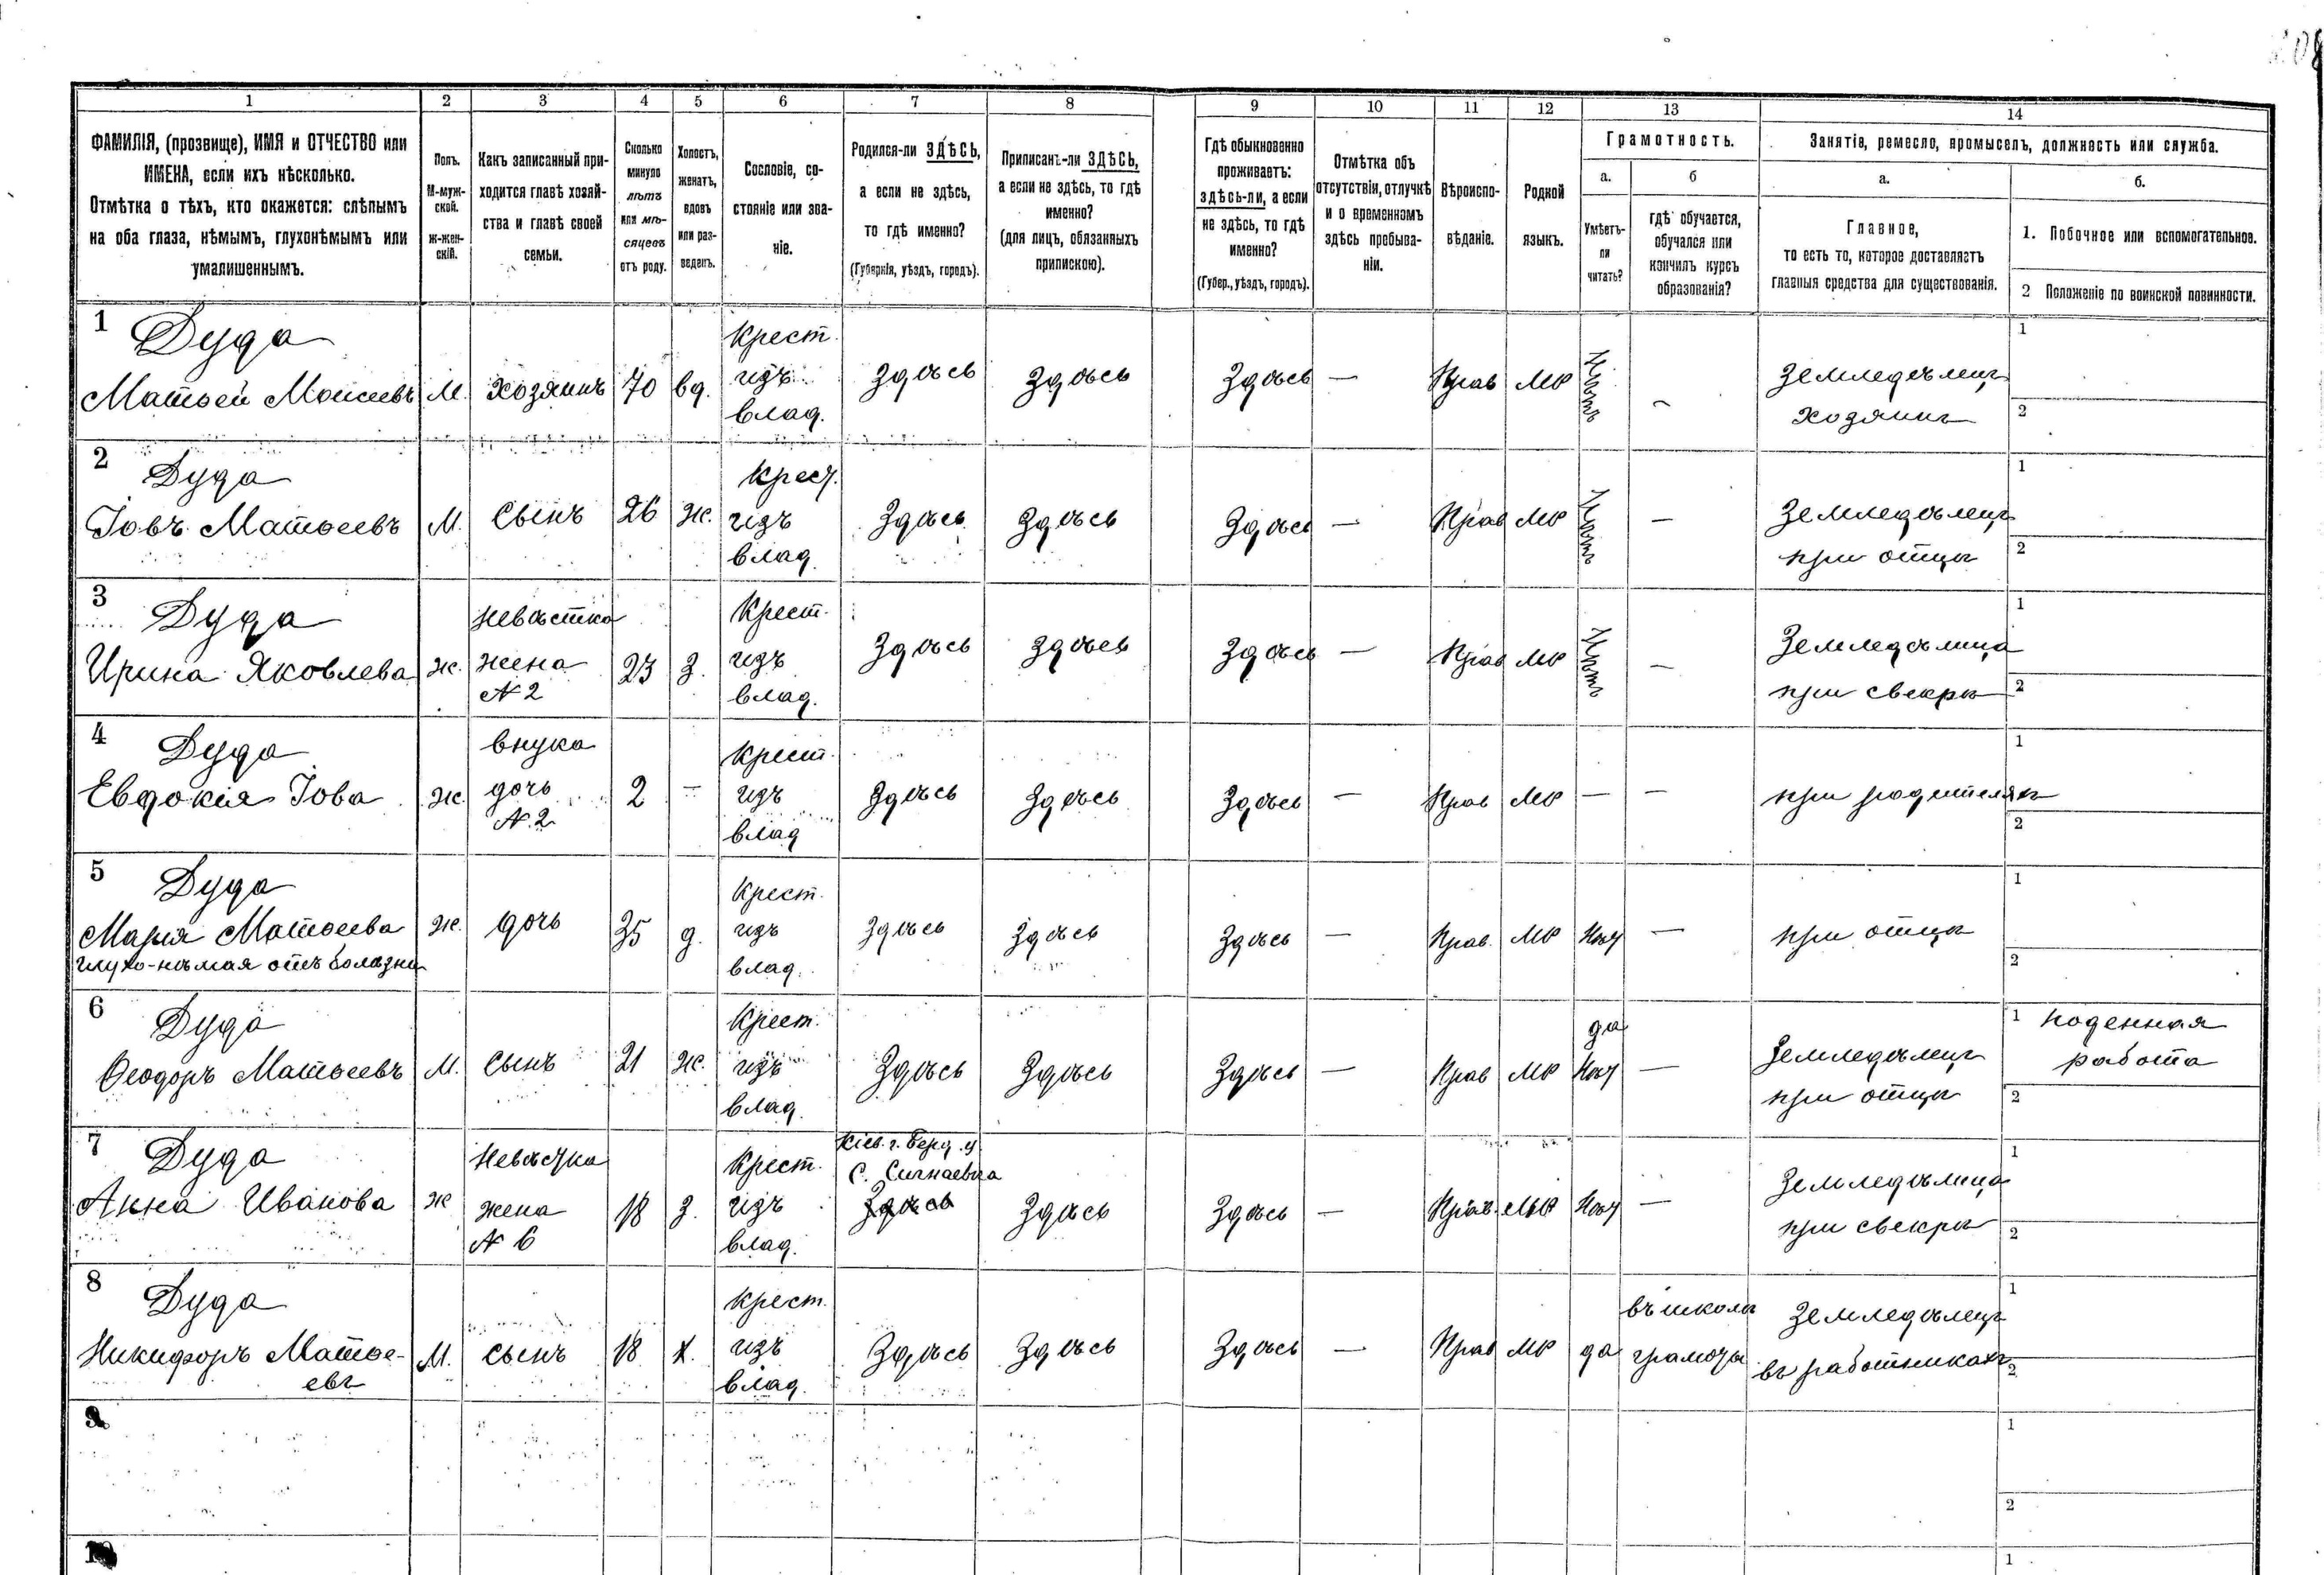 1 2 3 4 5 6 7 8 9 10 11 12 13 14
ФАМИЛІЯ, (прозвище), ИМЯ и ОТЧЕСТВО или
ИМЕНА, если ихъ нѣсколько.
Отмѣтка о тѣхъ, кто окажется: слѣпымъ
на оба глаза, нѣмымъ, глухонѣмымъ или
умалишеннымъ.
Полъ.
М-муж-
ской.
Ж-жен-
скій.
Какъ записанный при-
ходится главѣ хозяй-
ства и главѣ своей
семьи.
Сколько
минуло
лѣтъ
или мѣ-
сяцевъ
отъ роду.
Холостъ,
женатъ,
вдовъ
или раз-
веденъ.
Сословіе, со-
стояніе или зва-
ніе.
Родился-ли ЗДѢСЬ,
а если не здѣсь,
то гдѣ именно?
(Губернія, уѣздъ, городъ).
Приписанъ-ли ЗДѢСЬ,
а если не здѣсь, то гдѣ
именно?
(для лицъ, обязанныхъ
припискою).
Гдѣ обыкновенно
проживаетъ:
здѣсь-ли, а если
не здѣсь, то гдѣ
именно?
(Губер., уѣздъ, городъ).
Отмѣтка объ
отсутствіи, отлучкѣ
и о временномъ
здѣсь пребыва-
ніи.
Вѣроиспо-
вѣданіе.
Родной
языкъ.
Грамотность.
а.
Умѣетъ-
ли
читать?
б
гдѣ обучается,
обучался или
кончилъ курсъ
образованія?
Занятія, ремесло, промыселъ, должность или служба.
а.
Главное,
то есть то, которое доставляетъ
главныя средства для существованія.
б.
1. Побочное или вспомогательное.
2 Положеніе по воинской повинности.
1
Дуда
Матвѣй Моисеевъ
М.
хозяинъ
70
вд.
Крест.
изъ
влад.
Здѣсь
Здѣсь
Здѣсь
—
Прав
МР
Нѣтъ
—
Земледѣлецъ
хозяинъ
1
2
2
Дуда
Іовъ Матвѣевъ
М.
Сынъ
26
Ж.
Крест.
изъ
влад.
Здѣсь
Здѣсь
Здѣсь
—
Прав
МР
Нѣтъ
—
Земледѣлецъ
при отцѣ
1
2
3
Дуда
Ирина Яковлева
Ж.
невѣстка
жена
№ 2
23
З.
Крест.
изъ
влад.
Здѣсь
Здѣсь
Здѣсь
—
Прав
МР
Нѣтъ
—
Земледѣлица
при свекрѣ
1
2
4
Дуда
Евдокія Іова
Ж.
внука
дочь
№ 2
2
—
Крест.
изъ
влад
Здѣсь
Здѣсь
Здѣсь
—
Прав
МР
—
—
при родителяхъ
1
2
5
Дуда
Марія Матвѣева
глухо-нѣмая отъ болѣзни
Ж.
дочь
35
д.
Крест.
изъ
влад.
Здѣсь
Здѣсь
Здѣсь
—
Прав.
МР
Нѣт
—
при отцѣ
1
2
6
Дуда
Ѳеодоръ Матвѣевъ
М.
Сынъ
21
Ж.
Крест.
изъ
влад.
Здѣсь
Здѣсь
Здѣсь
—
Прав
МР
да
Нѣт
—
Земледѣлецъ
при отцѣ
1 поденная
работа
2
7
Дуда
Анна Иванова
Ж
Невѣстка
жена
№ 6
18
З.
Крест.
изъ
влад.
Кіев. г. Берд. у.
С.
Здѣсь
Здѣсь
Здѣсь
—
Прав.
МР
Нѣт
—
Земледѣлица
при свекрѣ
1
2
8
Дуда
Никифоръ Матвѣ-
евъ
М.
сынъ
18
Х.
Крест.
изъ
влад.
Здѣсь
Здѣсь
Здѣсь
—
Прав
МР
да
въ школѣ
грамоты
Земледѣлецъ
въ работникахъ
1
2
1
2
1